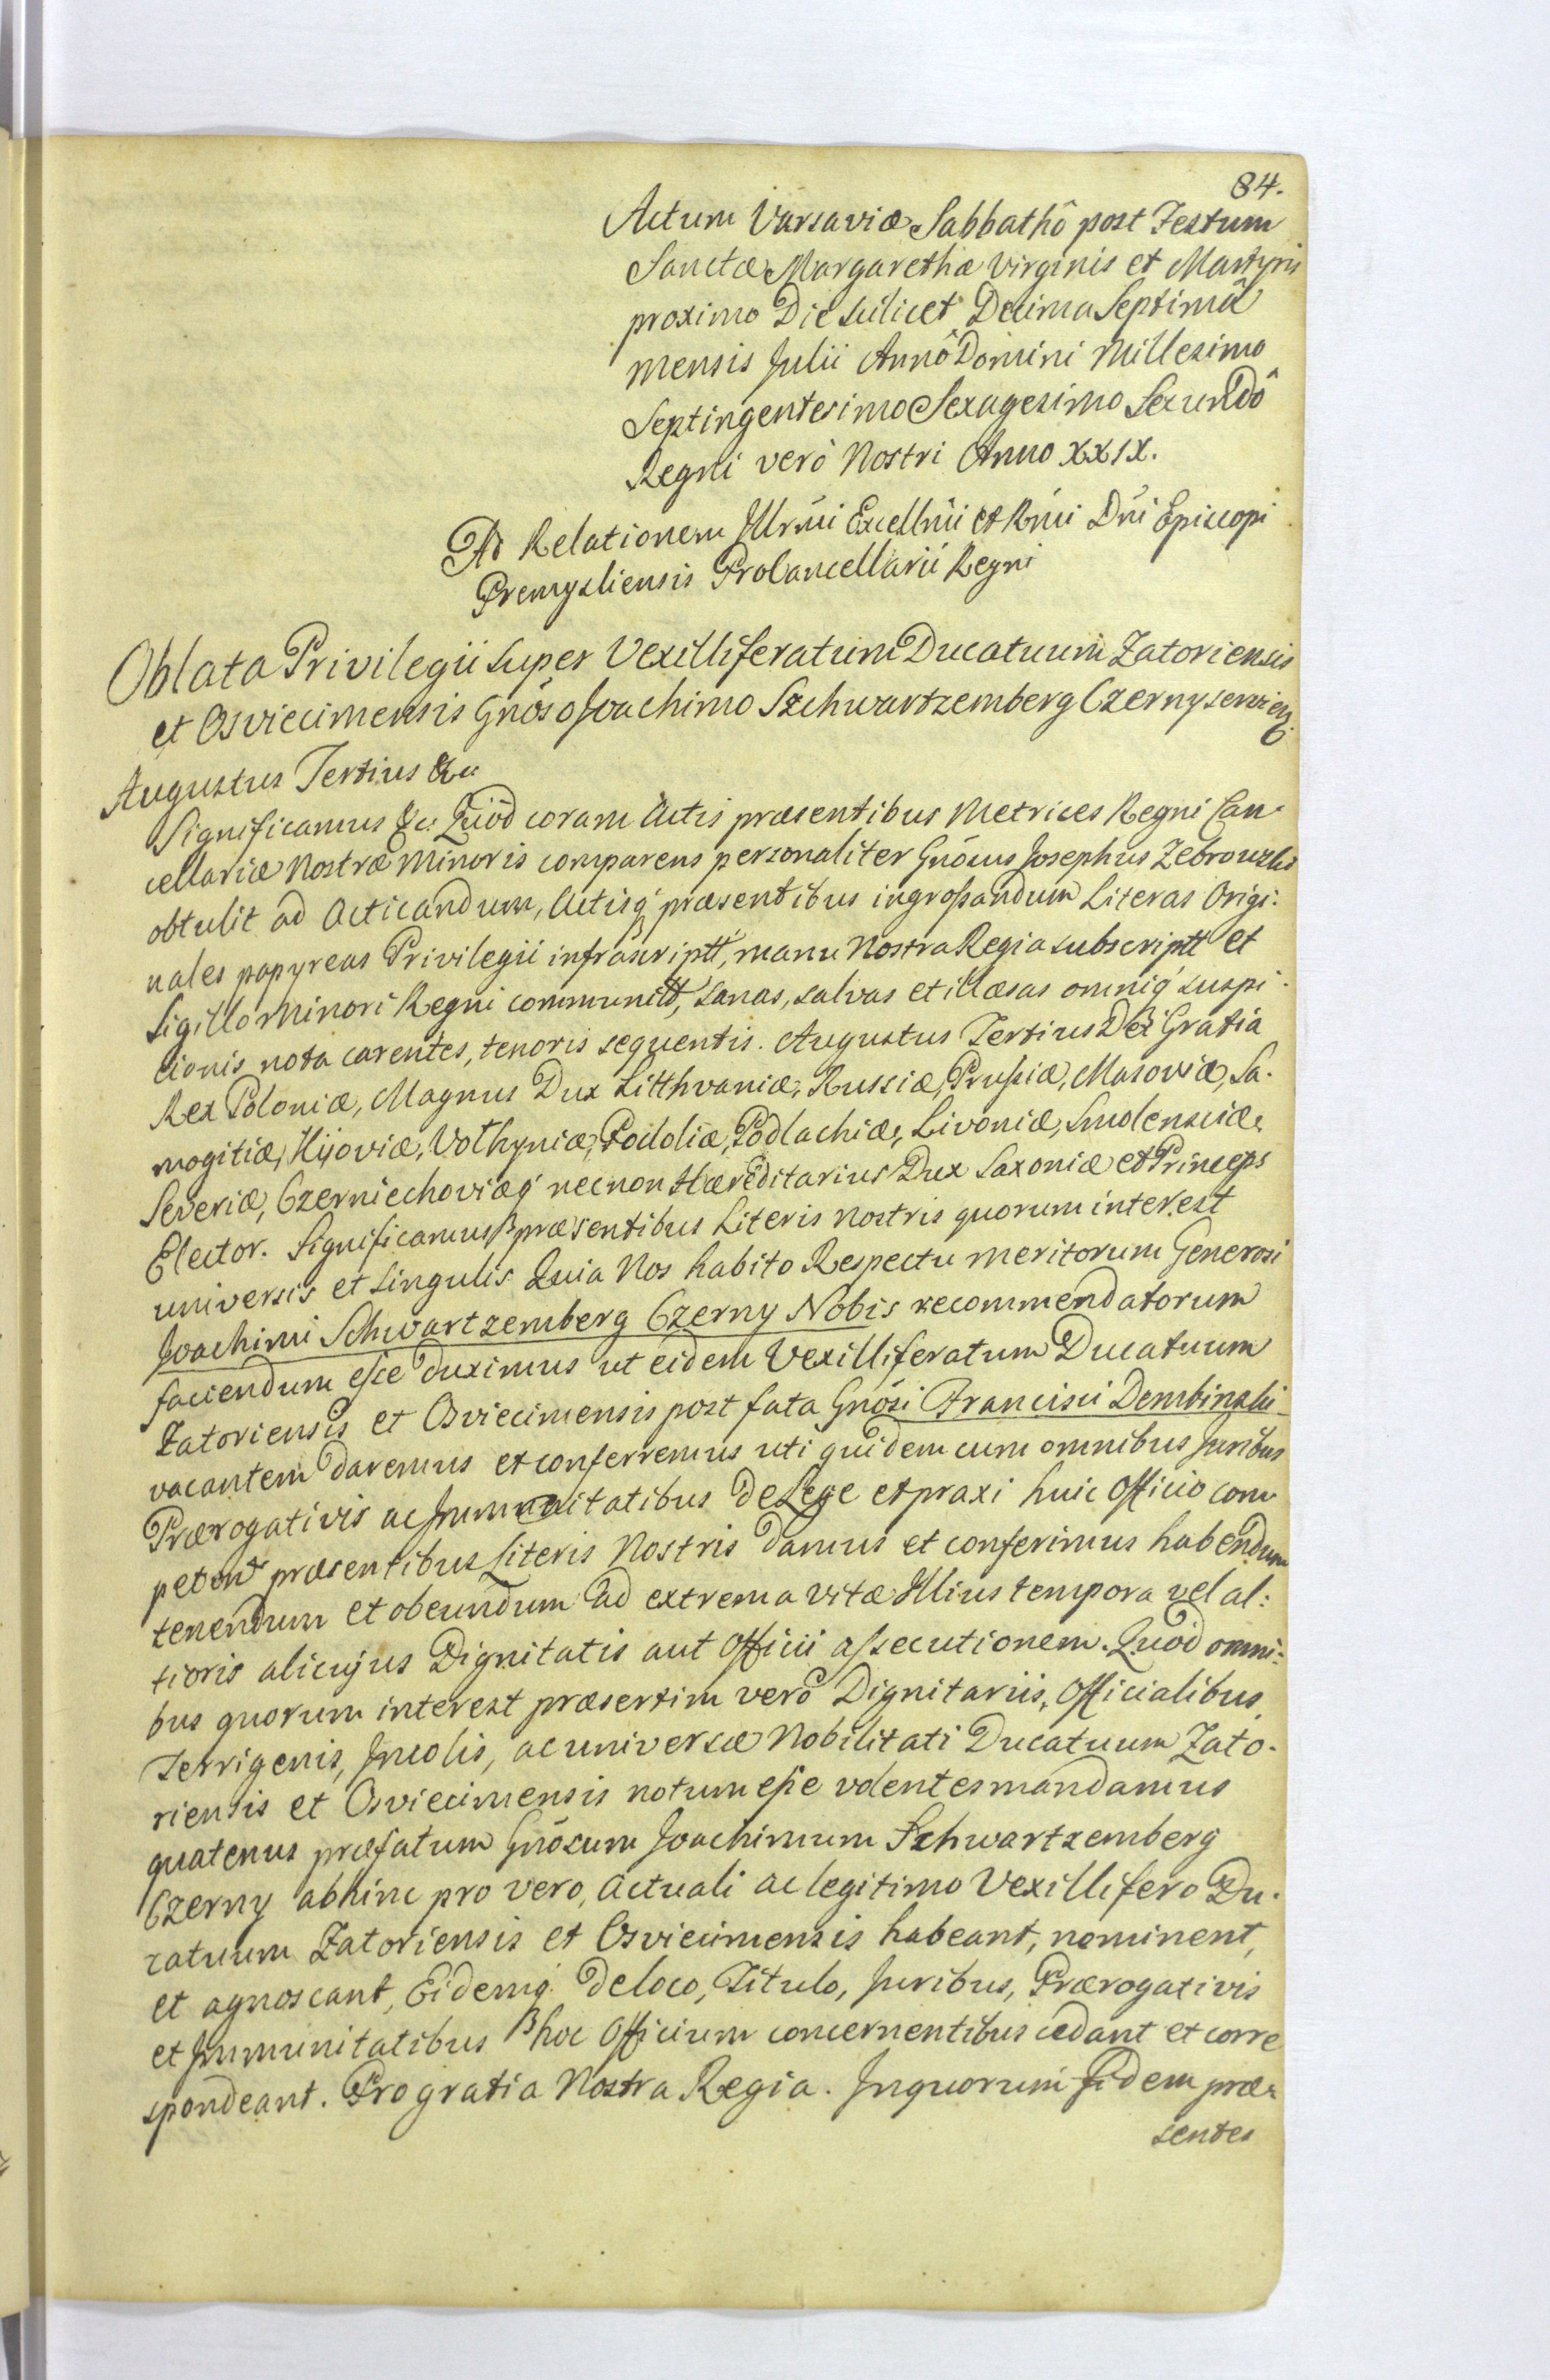 84.
Actum Varsaviæ Sabbathô post Festum
Sanctæ Margarethæ Virginis et Martyris
proximo Die scilicet Decima Septimâ
mensis Julii Annô Domini Millesimo
Septingentesimo Sexagesimo Secundô
Regni verò Nostri Anno XXIX.
Ad Relationem Illrmi Excellmi et Rmi Dni Episcopi
Premysliensis ProCancellarii Regni
Oblata Privilegii super Vexilliferatum Ducatuum Zatoriensis
et Osviecimensis Gnoso Joachimo Szchwartzemberg Czerny servien.
Augustus Tertius &c
Significamus &c: Quod coram Actis præsentibus Metrices Regni Can-
cellariæ Nostræ Minoris comparens personaliter Gnosus Josephus Zebrowski
obtulit ad Acticandum, Actisq præsentibus ingrossandum Literas Origi:
nales papyreas Privilegii infrascriptt, manu Nostra Regia subscriptt et
Sigillo Minori Regni communitt, sanas, salvas et illæsas omniq suspi:
cionis nota carentes, tenoris sequentis. Augustus Tertius Dei Gratia
Rex Poloniæ, Magnus Dux Litthvaniæ, Russiæ, Prussiæ, Masoviæ, Sa-
mogitiæ, Kijoviæ, Volhyniæ, Podoliæ, Podlachiæ, Livoniæ, Smolensciæ,
Severiæ, Czerniechoviæq necnon Hæreditarius Dux Saxoniæ et Princeps
Elector. Significamus præsentibus Literis nostris quorum interest
universis et singulis Quia Nos habito Respectu meritorum Generosi
Joachimi Schwartzemberg Czerny Nobis recommendatorum
faciendum esse duximus ut eidem Vexilliferatum Ducatuum
Zatoriensis et Osviecimensis post fata Gnosi Francisci Dembinski
vacantem daremus et conferremus uti quidem cum omnibus Juribus
Prærogativis ac Immunitatibus de Lege et praxi huic Officio com
petent præsentibus Literis Nostris damus et conferimus habendum
tenendum et obeundum ad extrema vitæ Illius tempora vel al:
tioris alicujus Dignitatis aut Officii assecutionem. Quod omni:
bus quorum interest præsertim verò Dignitariis, Officialibus,
Terrigenis, Incolis, ac universæ Nobilitati Ducatuum Zato-
riensis et Osviecimensis notum esse volentes mandamus
quatenus præfatum Gnosum Joachimum Szhwartzemberg
Czerny abhinc pro vero, actuali ac legitimo Vexillifero Du-
catuum Zatoriensis et Osviecimensis habeant, nominent,
et agnoscant, Eidemq de loco, Titulo, Juribus, Prærogativis
et Immunitatibus hoc Officium concernentibus cedant et corre
spondeant. Pro gratia Nostra Regia. In quorum fidem præ-
sentes